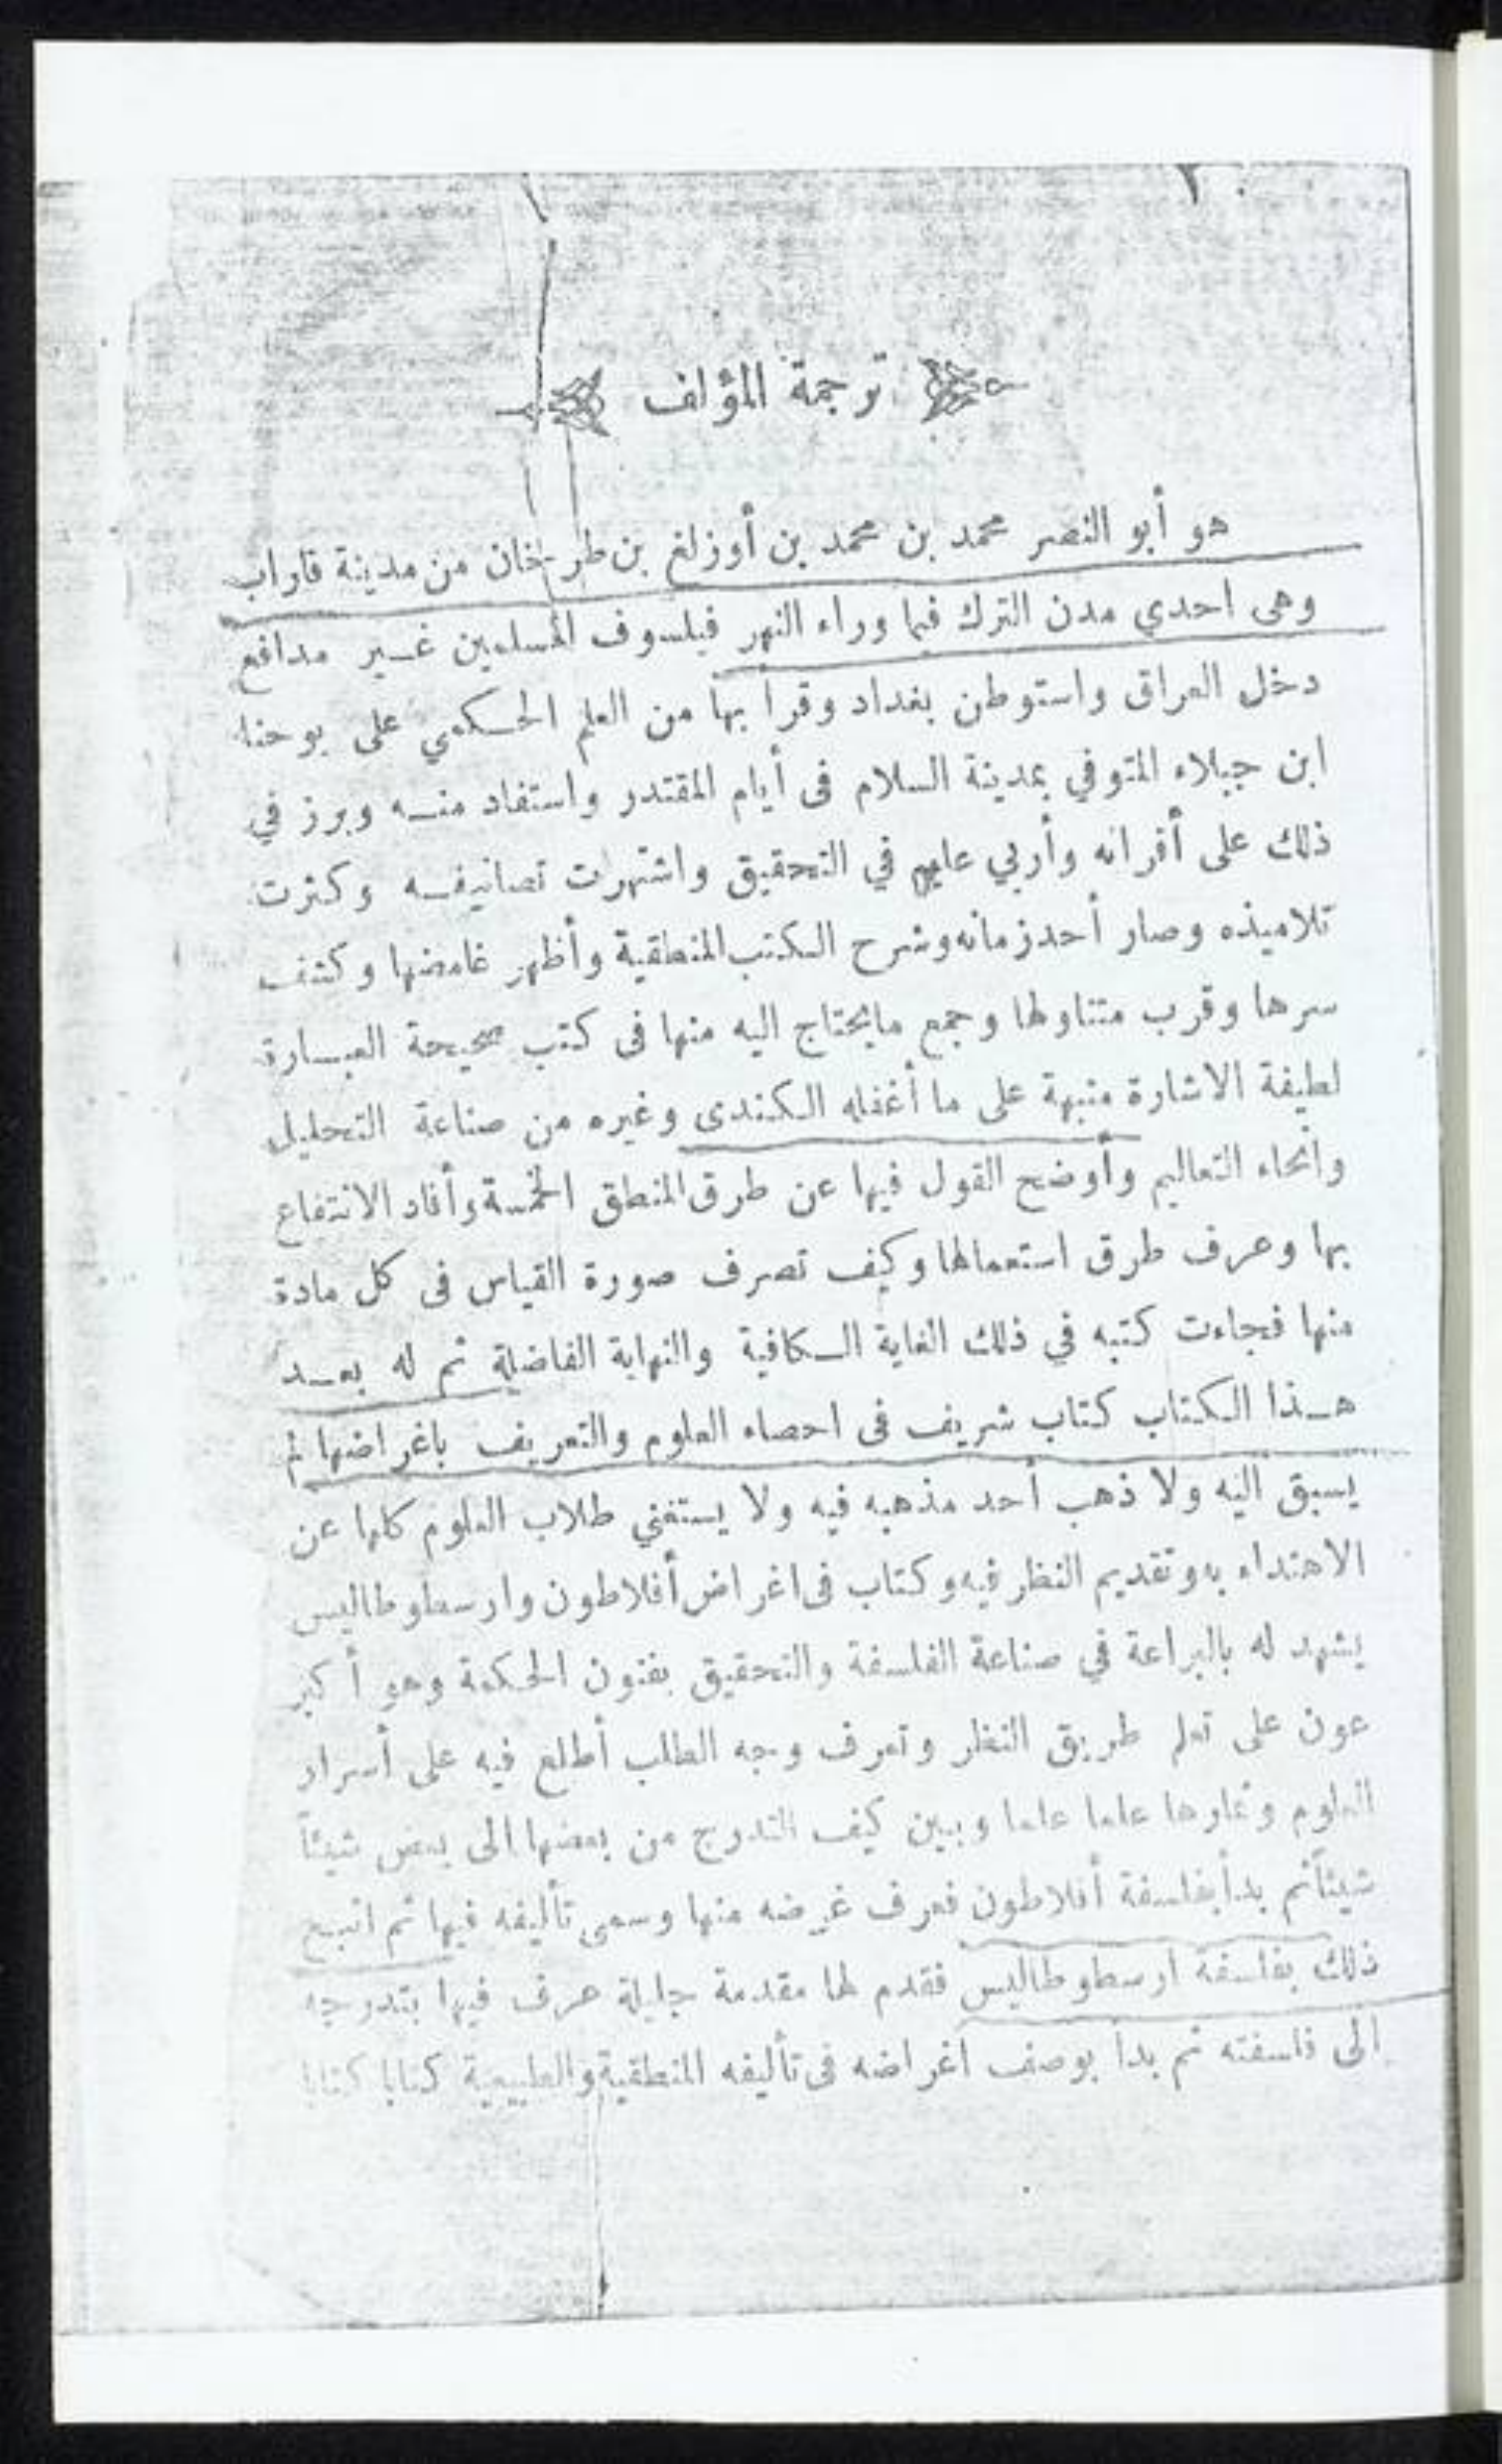 ٢
ترجمة المؤلف
هو أبو النصر محمد بن محمد بن أوزلغ بن طرخان من مدينة فاراب
وهى احدي مدن الترك فيما وراء النهر فيلسوف المسلمين غير مدافع
دخل العراق واستوطن بغداد وقرأ بها من العلم الحكمي على يوحنا
ابن جيلاء المتوفي بمدينة السلام فى أيام المقتدر واستفاد منه وبرز في
ذلك على أقرانه وأربي عليهم في التحقيق واشتهرت تصانيفه وكثرت
تلاميذه وصار أحد زمانه وشرح الكتب المنطقية وأظهر غامضها وكشف
سرها وقرب متناولها وجمع مايحتاج اليه منها فى كتب صحيحة العبارة
لطيفة الاشارة منبهة على ما أغفله الكندى وغيره من صناعة التحليل
وانحاء التعاليم وأوضح القول فيها عن طرق المنطق الخمسة وأفاد الانتفاع
بها وعرف طرق استعمالها وكيف تصرف صورة القياس فى كل مادة
منها فجاءت كتبه في ذلك الغاية الكافية والنهاية الفاضلة ثم له بعد
هذا الكتاب كتاب شريف فى احصاء العلوم والتعريف باغراضها لم
يسبق اليه ولا ذهب أحد مذهبه فيه ولا يستغني طلاب العلوم كلها عن
الاهتداء به وتقديم النظر فيه وكتاب فى اغراض أفلاطون وارسطوطاليس
يشهد له بالبراعة في صناعة الفلسفة والتحقيق بفنون الحكمة وهو أكبر
عون على تعلم طريق النظر وتعرف وجه الطلب أطلع فيه على أسرار
العلوم وثمارها علما علما وبين كيف التدرج من بعضها الى بعض شيئاً
شيئاً ثم بدأ بفلسفة أفلاطون فعرف غرضه منها وسمى تأليفه فيها ثم اتبع
ذلك بفلسفة ارسطوطاليس فقدم لها مقدمة جليلة عرف فيها بتدرجه
الى فلسفته ثم بدأ بوصف اغراضه فى تأليفه المنطقية والطبيعية كتابا كتابا